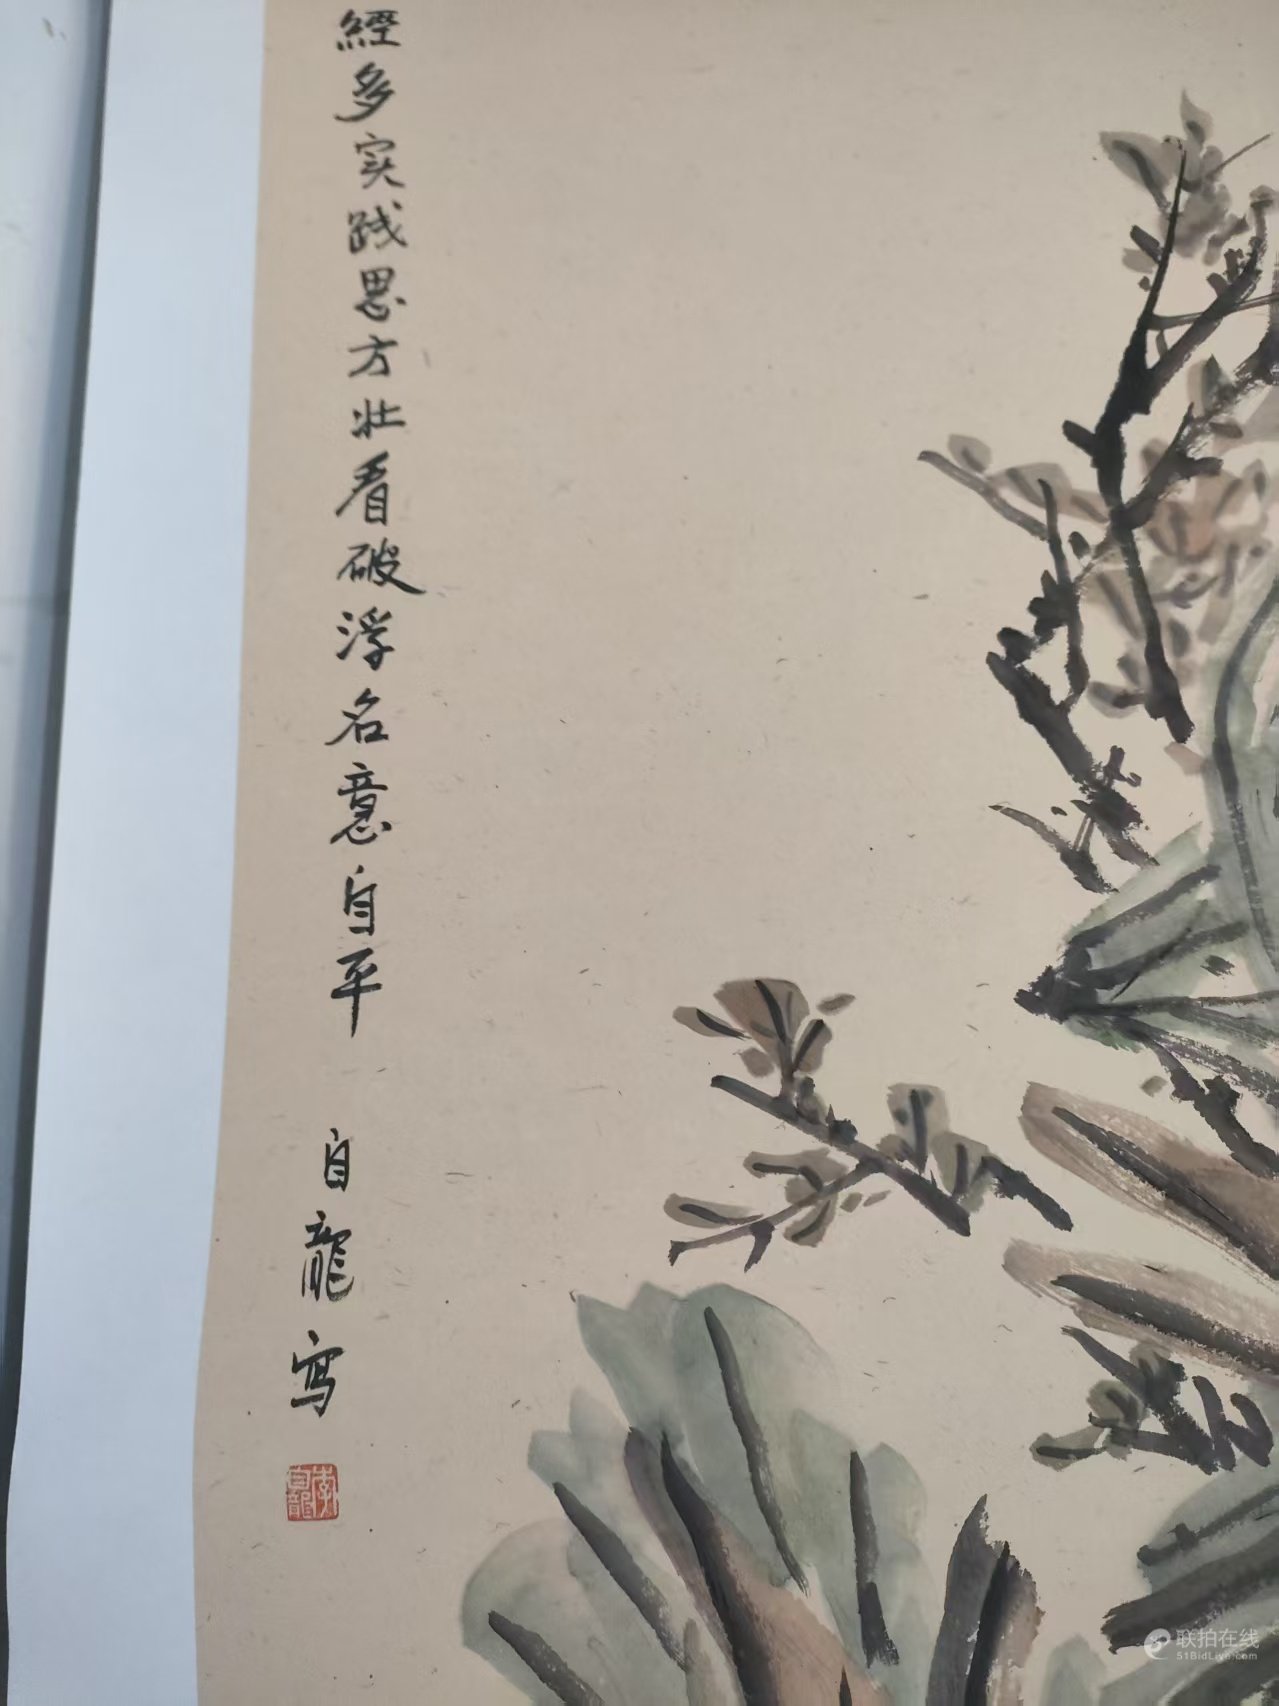 經多实践思方壮看破浮名意自平
自龍寫
李自龍
联拍在线
51BidLive.com